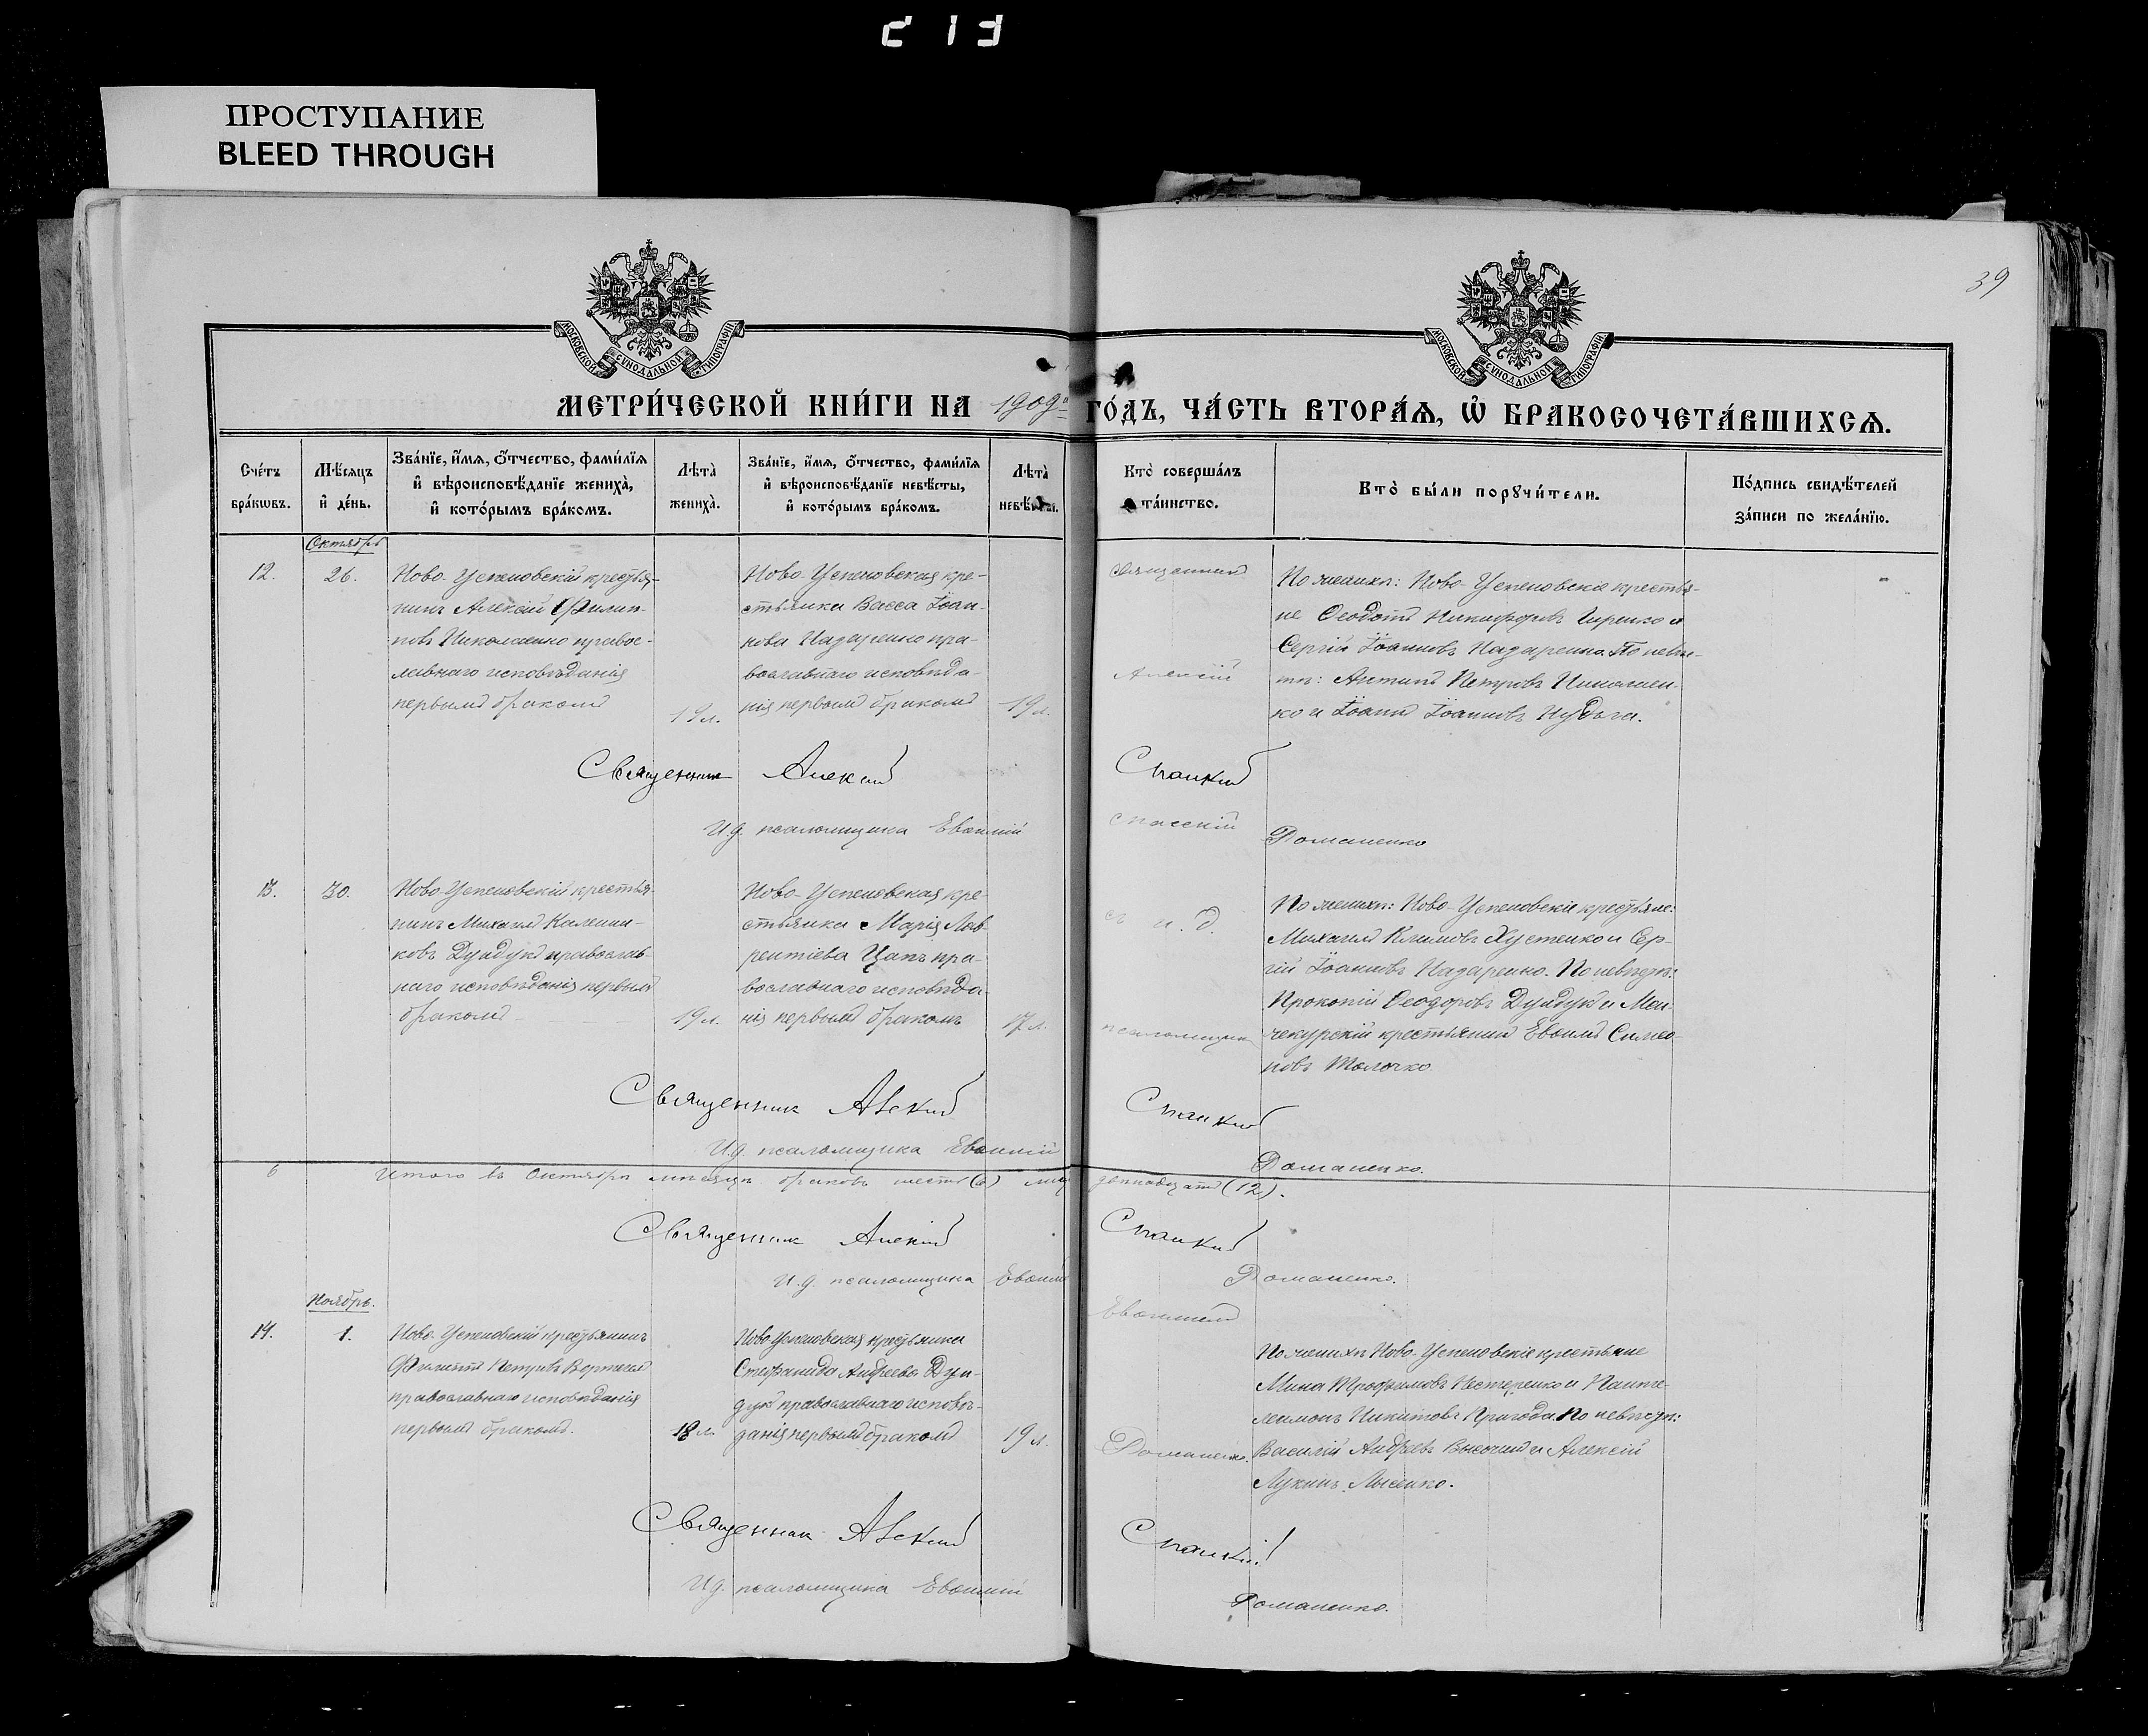 213
ПРОСТУПАНИЕ
BLEED THROUGH
39
МОСКОВСКОЙ СУНОДАЛЬНОЙ ТИПОГРАФІИ
МОСКОВСКОЙ СУНОДАЛЬНОЙ ТИПОГРАФІИ
МЕТРИ́ЧЕСКОЙ КНИ́ГИ НА 1909й ГО́ДЪ, ЧА́СТЬ ВТОРА́Ѧ, Ѽ БРАКОСОЧЕТА́ВШИХСѦ.
Сче́тъ
бра́кѡвъ.
Мѣ́сѧцъ
и҆ де́нь.
Зва́нїе, и҆́мѧ, ѻ҆́тчество, фами́лїѧ
и҆ вѣроисповѣ́данїе жениха̀,
и҆ кото́рымъ бра́комъ.
Лѣта̀
жениха̀.
Зва́нїе, и҆́мѧ, ѻ҆́тчество, фами́лїѧ
и҆ вѣроисповѣ́данїе невѣ́сты,
и҆ кото́рымъ бра́комъ.
Лѣта̀
невѣ́сты.
Кто̀ соверша́лъ
та́инство.
Кто̀ бы́ли порꙋчи́тели.
По́дпись свидѣ́телей
за́писи по жела́нїю.
Октябрь
12.
26.
Ново-Успеновскій крестья-
нинъ Алексій Филип-
повъ Николаенко правос-
лавнаго исповѣданія
первымъ бракомъ
19 л.
Ново-Успеновская кре-
стьянка Васса Іоан-
нова Назаренко пра-
вославнаго исповѣда-
нія первымъ бракомъ
19 л.
Священникъ
Алексій
Спасскій
съ и. д.
псаломщика
Евѳиміемъ
Романенко.
По женихѣ: Ново-Успеновскіе крестья-
не Ѳеодотъ Никифоровъ и
Сергій Іоанновъ Назаренко. По невѣс-
тѣ: Антипъ Петровъ Николаен-
ко и Іоаннъ Іоанновъ Нудьга.
Священникъ Алексій Спасскій
И.д. псаломщика Евѳимій Романенко
13.
30.
Ново-Успеновскій крестья-
нинъ Михаилъ Каленни-
ковъ Дундукъ православ-
наго исповѣданія первымъ
бракомъ
19 л.
Ново-Успеновская кре-
стьянка Марія Лав-
рентіева Цапъ пра-
вославнаго исповѣда-
нія первымъ бракомъ
17 л.
По женихѣ: Ново-Успеновскіе крестьяне:
Михаилъ Климовъ Хустенко и Сер-
гій Іоанновъ Назаренко. По невѣстѣ:
Прокопій Ѳеодоровъ Дундукъ и Мен-
чекурскій крестьянинъ Евѳимъ Симео-
новъ Толочко.
Священникъ Алексій Спасскій
И.д. псаломщика Евѳимій Романенко.
6 Итого въ Октябрѣ мѣсяцѣ браковъ шесть (6) лицъ двѣнадцать (12).
Священникъ Алексій Спасскій
И.д. псаломщика Евѳимій Романенко.
Ноябрь.
14.
1.
Ново-Успеновскій крестьянинъ
Филиппъ Петровъ
православнаго исповѣданія
первымъ бракомъ.
18 л.
Ново-Успеновская крестьянка
Стефанида Андреева Дун-
дукъ православнаго исповѣ-
данія первымъ бракомъ
19 л.
По женихѣ Ново-Успеновскіе крестьяне
Мина Трофимовъ Нестеренко и Панте-
леимонъ Никитовъ Пригода. По невѣстѣ:
Василій Андреевъ и Алексій
Лукинъ Лысенко.
Священникъ Алексій Спасскій
И.д. псаломщика Евѳимій Романенко.